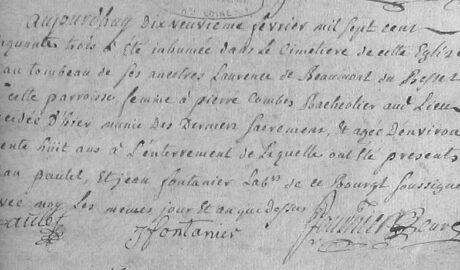 aujourdhuy Dix neuvieme février mil sept cent
inquante trois a été inhumée dans Le Cimetiere de cette Eglise
au tombeau de ses ancestres Laurence de Beaumont du
cette parroisse, femme à pierre Combes audt Lieu
cedée D'hier munie Des Derniers Sacremens, Et agée Denviron
ente huit ans à L'enterrement de Laquelle ont été présents
an paulet, Et jean fontanier Labrs de ce Bourgt Soussignés
vec moy Les memes jour Et an que dessus
paulet Jfontanier